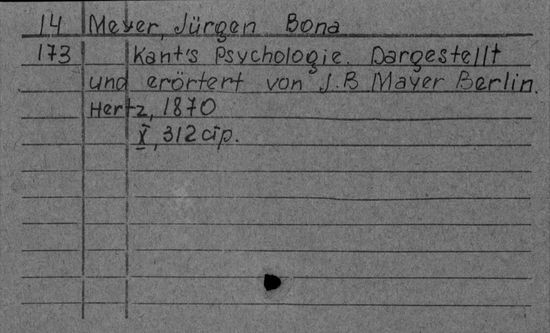 14 Meyer, Jürgen Bona
173 Kant's Psychologie. Dargestellt
und erörtert von J.B Mayer Berlin.
Hertz, 1870
X, 312 cтр.